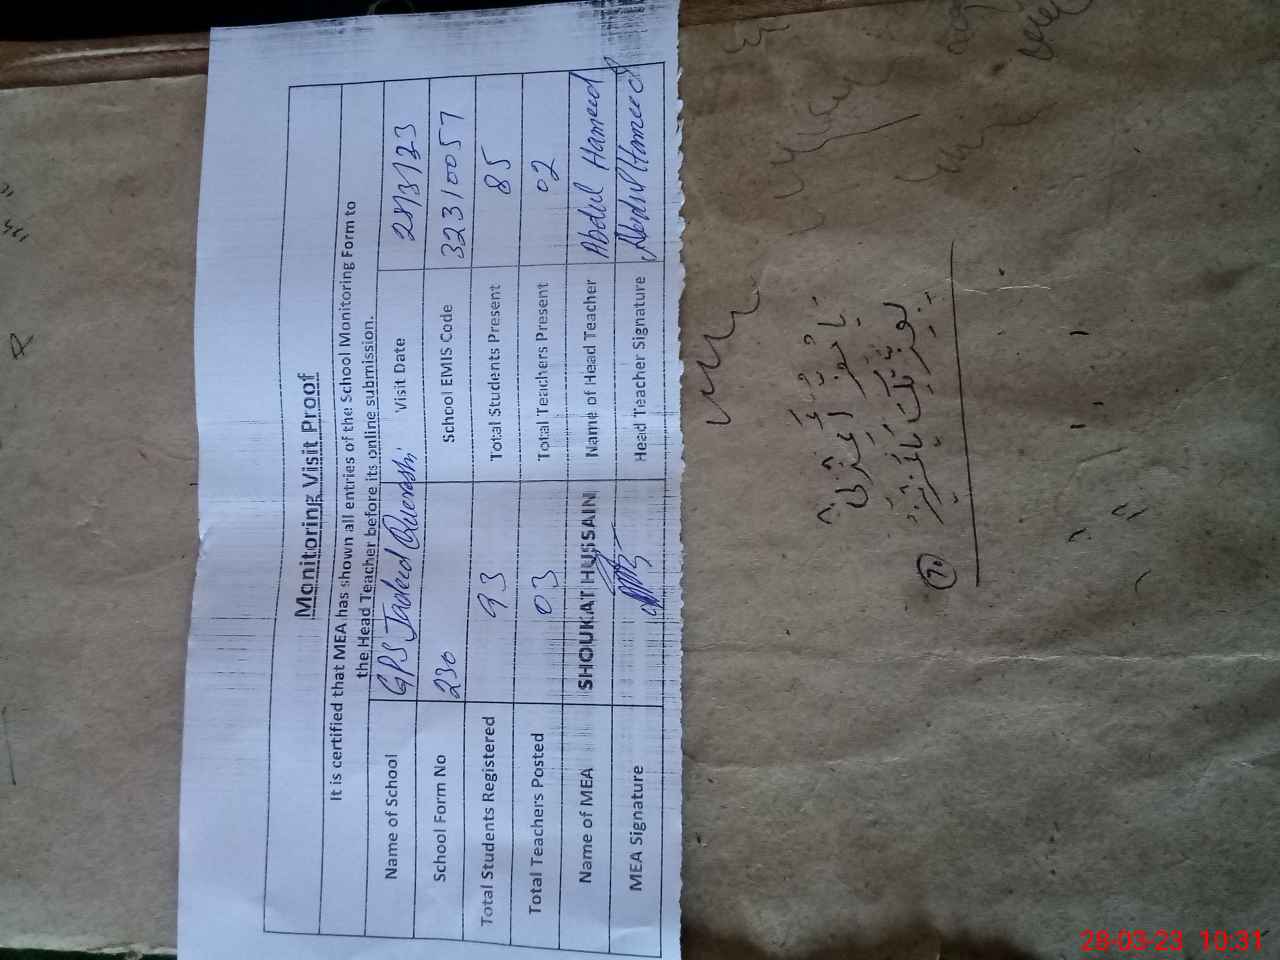 Monitoring Visit Proof
It is certified that MEA has shown all entries of the School Monitoring Form to
the Head Teacher before its online submission.
Name of School GPS Jadeed Quereshi Visit Date 28/3/23
School Form No 230 School EMIS Code 32310057
Total Students Registered 93 Total Students Present 85
Total Teachers Posted 03 Total Teachers Present 02
Name of MEA SHOUKAT HUSSAIN Name of Head Teacher Abdul Hameed
MEA Signature Head Teacher Signature Abdul Hameed
28-03-23 10:31